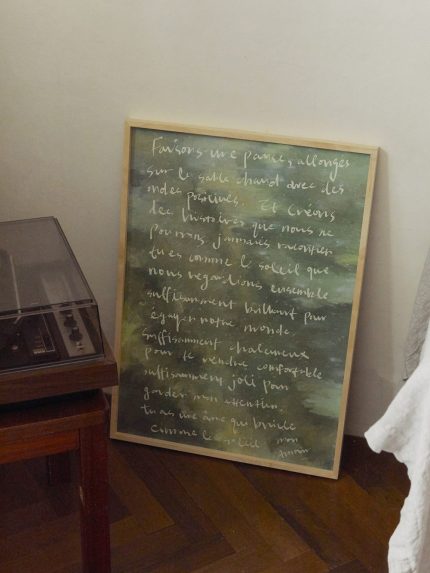 Faisons une pause, allongés
sur le sable chaud avec des
ondes positives. Et créons
des histoires que nous ne
pourrons jamais raconter
tu es comme le soleil que
nous regardions ensemble
suffisamment brillant pour
égayer notre monde.
suffisamment chaleureux
pour te rendre comfortable
suffisamment joli pour
garder mon attention.
tu as une âme qui brille
comme le soleil mon
Amour